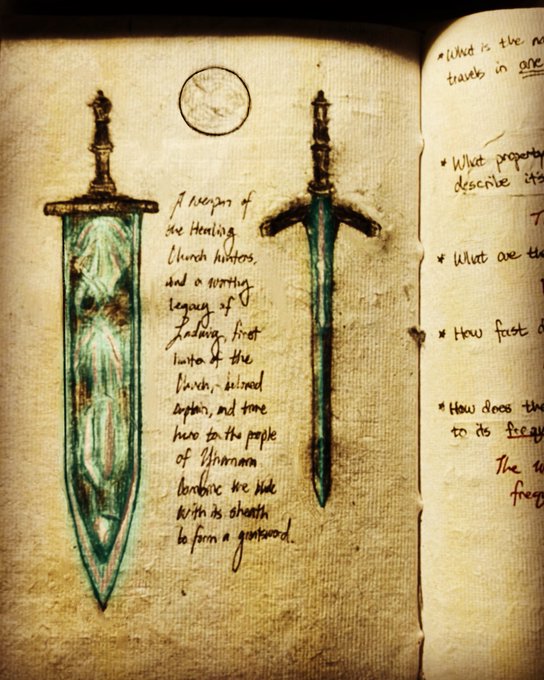 A weapon of
the Healing
Church hunters,
and a worthy
legacy of
Ludwig, first
hunter of the
Church, beloved
captain, and true
hero to the people
of Yharnam
Combine the blade
with its sheath
to form a greatsword.
*What is the
travels in one
* What property
describe it's
* What are the
* How fast
*How does the
to its
The